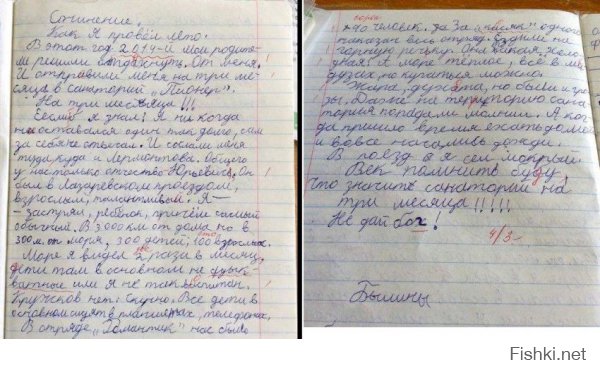 Сочинение.
Как я провёл лето.
В этот год 2014-й мои родите-
ли решили отдохнуть. От меня.
И отправили меня на три ме-
сяца в санаторий „Пионер".
На три месяца!!!
Если я знал! Я ни когда
не оставался один так долго, сам
за себя не отвечал. И сослали меня
туда, куда и Лермонтова. Общего
у нас только отчество Юрьевич. Он
был в Лазаревском проездом,
взрослым, талантливый. Я —
— застрял, ребёнок, причём самый
обычный. В 3000 км от дома но в
300 м. от моря, 300 детей, 100 взрослых.
Море я видел 2 раза в месяц,
дети там в основном не адык-
ватные или я не так воспитан.
Кружков нет. Скучно. Все дети в
основном сидят в планшетах, телефонах.
В отряде „Романтик" нас было
сорок
40 человек. За одного
наказан весь отряд. Ездили на
горную речку. Она дикая, холо-
дная. А море тёплое, всё в ме-
дузах, но купаться можно.
Жара, духота, но были и гро-
зы. Даже на територию сана-
тория попадали молнии. А ког
да пришло время ехать домой
и вовсе начались дожди.
В поезд я сел мокрым.
Век помнить буду,
что значить санаторий на
три месяца!!!!!
Не дай бох!
4/3-
Былины
Fishki.net